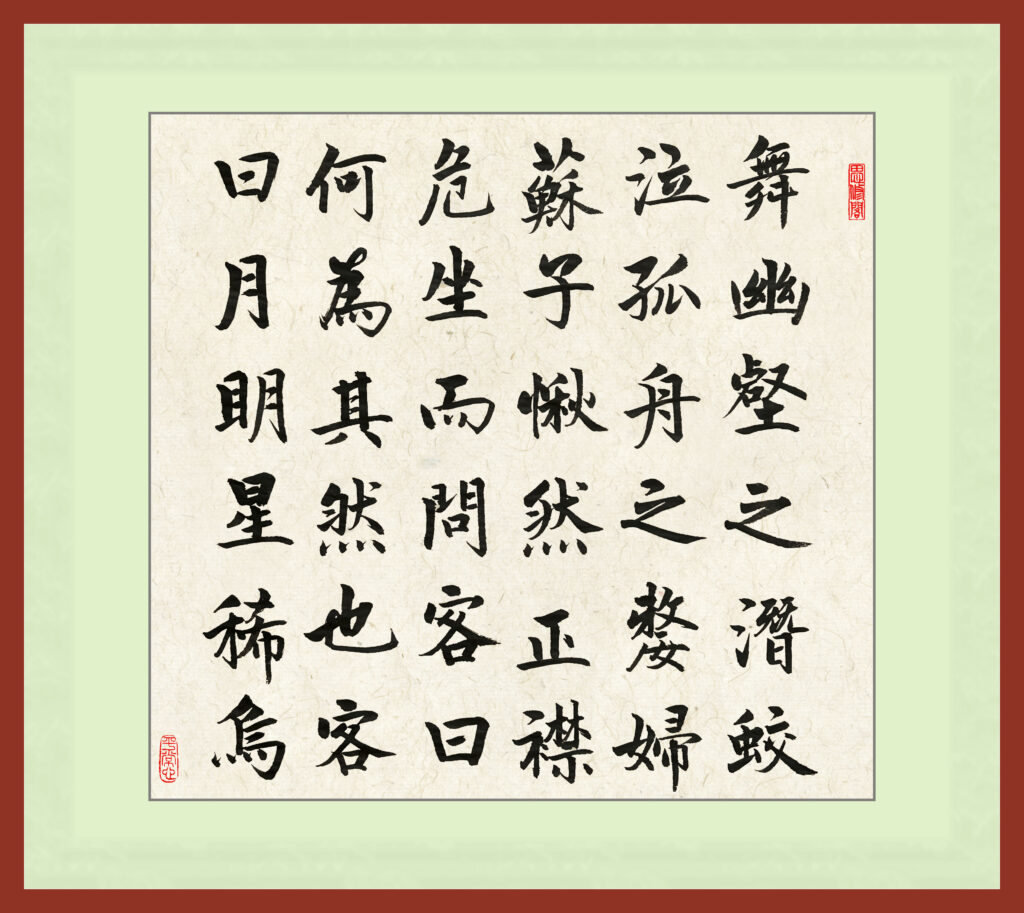 思修閣
舞幽壑之潛蛟
泣孤舟之嫠婦
蘇子愀然正襟
危坐而問客曰
何為其然也客
曰月明星稀烏
平常心